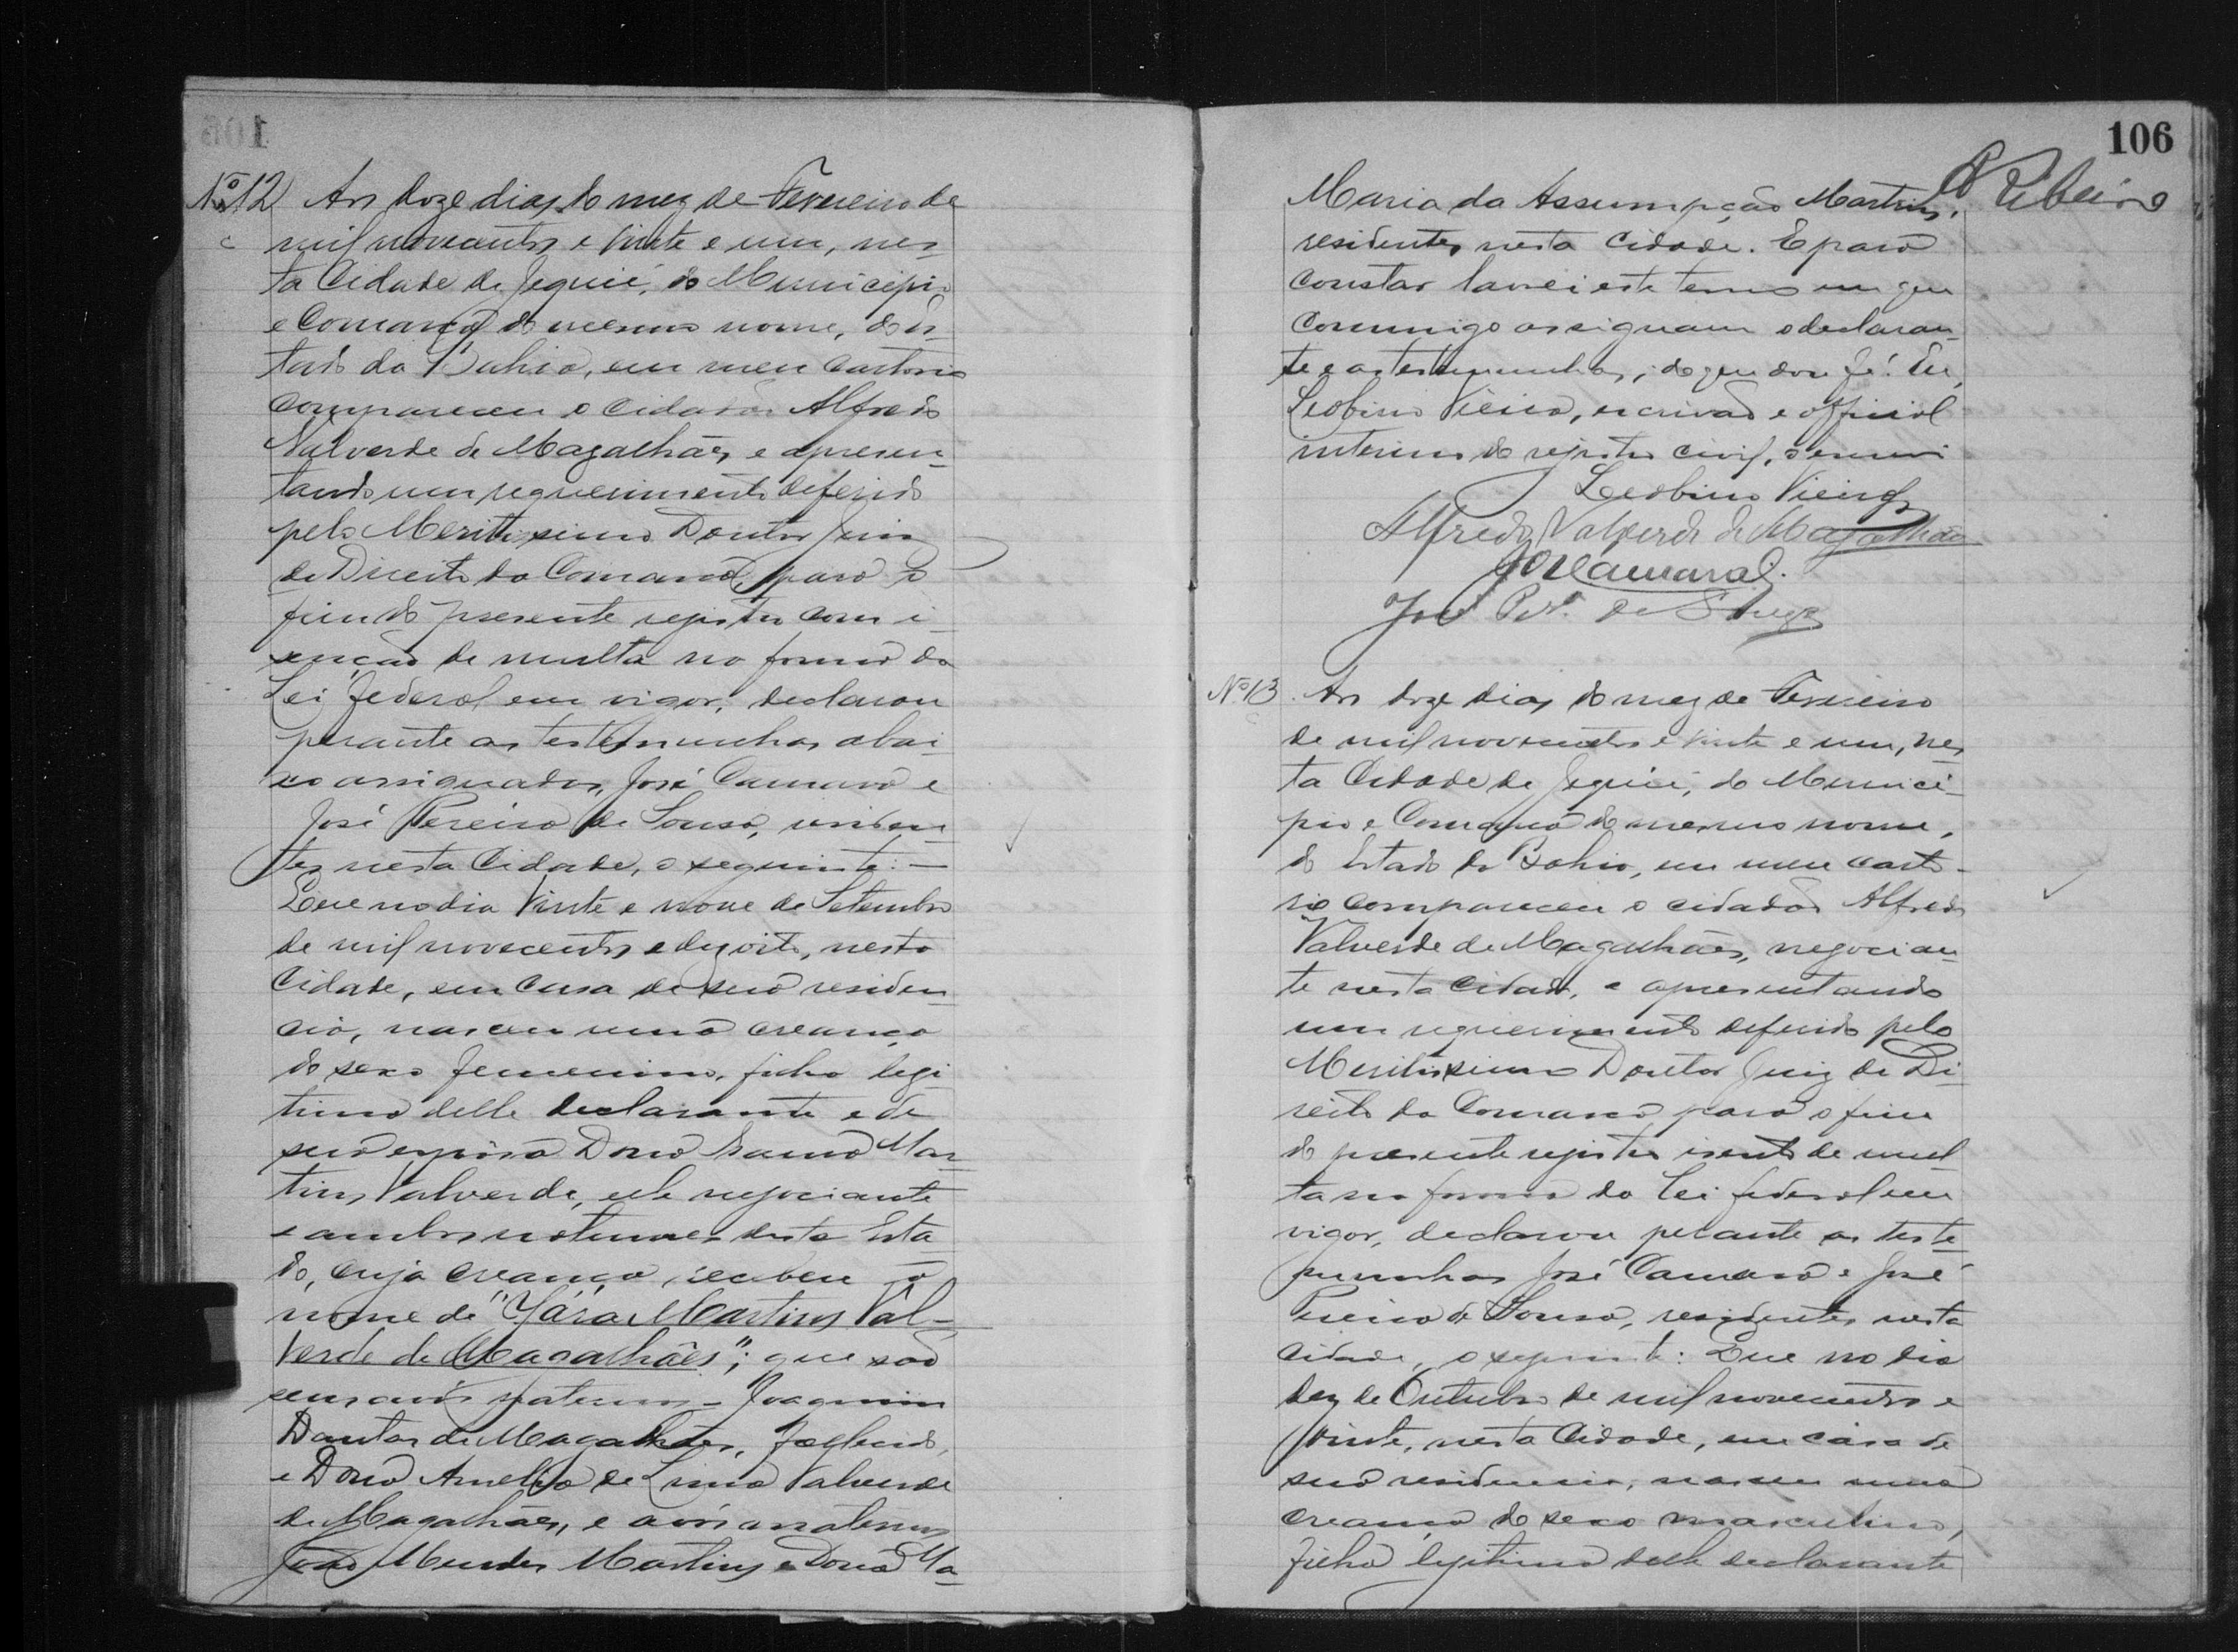 Nº 12 Aos doze dias do mez de Fevereiro de
mil novecentos e vinte e um, nes-
ta Cidade de Jequié, do Municipio
e Comarca do mesmo nome, do Es-
tado da Bahia, em meu cartorio
compareceu o cidadão Alfredo
Valverde de Magalhães e apresen-
tando um requerimento deferido
pelo Meritissimo Doutor Juiz
de Direito da Comarca, para o
fim do presente registro com i-
senção de multa na forma da
Lei federal em vigor, declarou
perante as testemunhas abai-
xo assignadas, José Camara e
José Pereira de Sousa, residen-
tes nesta Cidade, o seguinte: —
Que no dia vinte e nove de Setembro
de mil novecentos e dezoito, nesta
Cidade, em casa de sua residen-
cia, nasceu uma creança
do sexo femenino, filha legi-
tima delle declarante e de
sua esposa Dona Mar-
tins Valverde, elle negociante
e ambos naturaes deste Esta-
do, cuja creança recebeu o
nome de "Yára Martins Val-
verde de Magalhães"; que são
seus avós paternos - Joaquim
Dantas de Magalhães, fallecido,
e Dona Amelia de Lima Valverde
de Magalhães, e avós maternos
João Mendes Martins e Dona Ma-
106
Ribeiro
Maria da Assumpção Martins,
residentes nesta Cidade. E para
constar lavrei este termo em que
commigo assignam o declaran-
te e as testemunhas, do que dou fé. Eu,
Leobino Vieira, escrivão e official
interino do registro civil, o escrevi
Leobino Vieira
Alfredo Valverde de Magalhães
José Per. de Souza
Nº 13 Aos doze dias do mez de Fevereiro
de mil novecentos e vinte e um, nes-
ta Cidade de Jequié, do Munici-
pio e Comarca do mesmo nome,
do Estado da Bahia, em meu carto-
rio compareceu o cidadão Alfredo
Valverde de Magalhães, negocian-
te nesta cidade, e apresentando
um requerimento deferido pelo
Meritissimo Doutor Juiz de Di-
reito da Comarca para o fim
do presente registro isento de mul-
ta na forma da Lei federal em
vigor, declarou perante as teste-
munhas José Camara e José
Pereira de Sousa, residentes nesta
cidade, o seguinte: Que no dia
dez de Outubro de mil novecentos e
vinte, nesta Cidade, em casa de
sua residencia, nasceu uma
creança do sexo masculino,
filho legitimo delle declarante